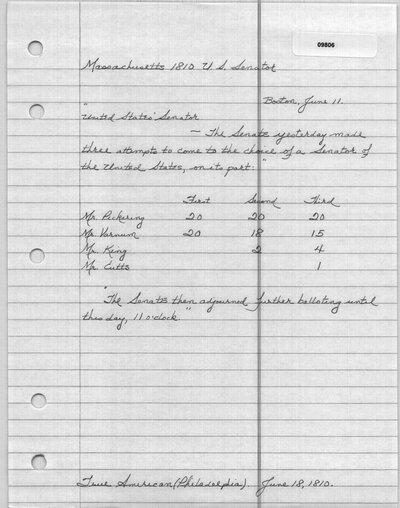 09806
Massachusetts 1810 U.S. Senator
Boston, June 11.
"United States' Senator
— The Senate yesterday made
three attempts to come to the choice of a Senator of
the United States, on its part:"
First Second Third
Mr. Pickering 20 20 20
Mr. Varnum 20 18 15
Mr. King 2 4
Mr. Cutts 1
"The Senate then adjourned further balloting until
this day, 11 o'clock."
True American (Philadelphia). June 18, 1810.